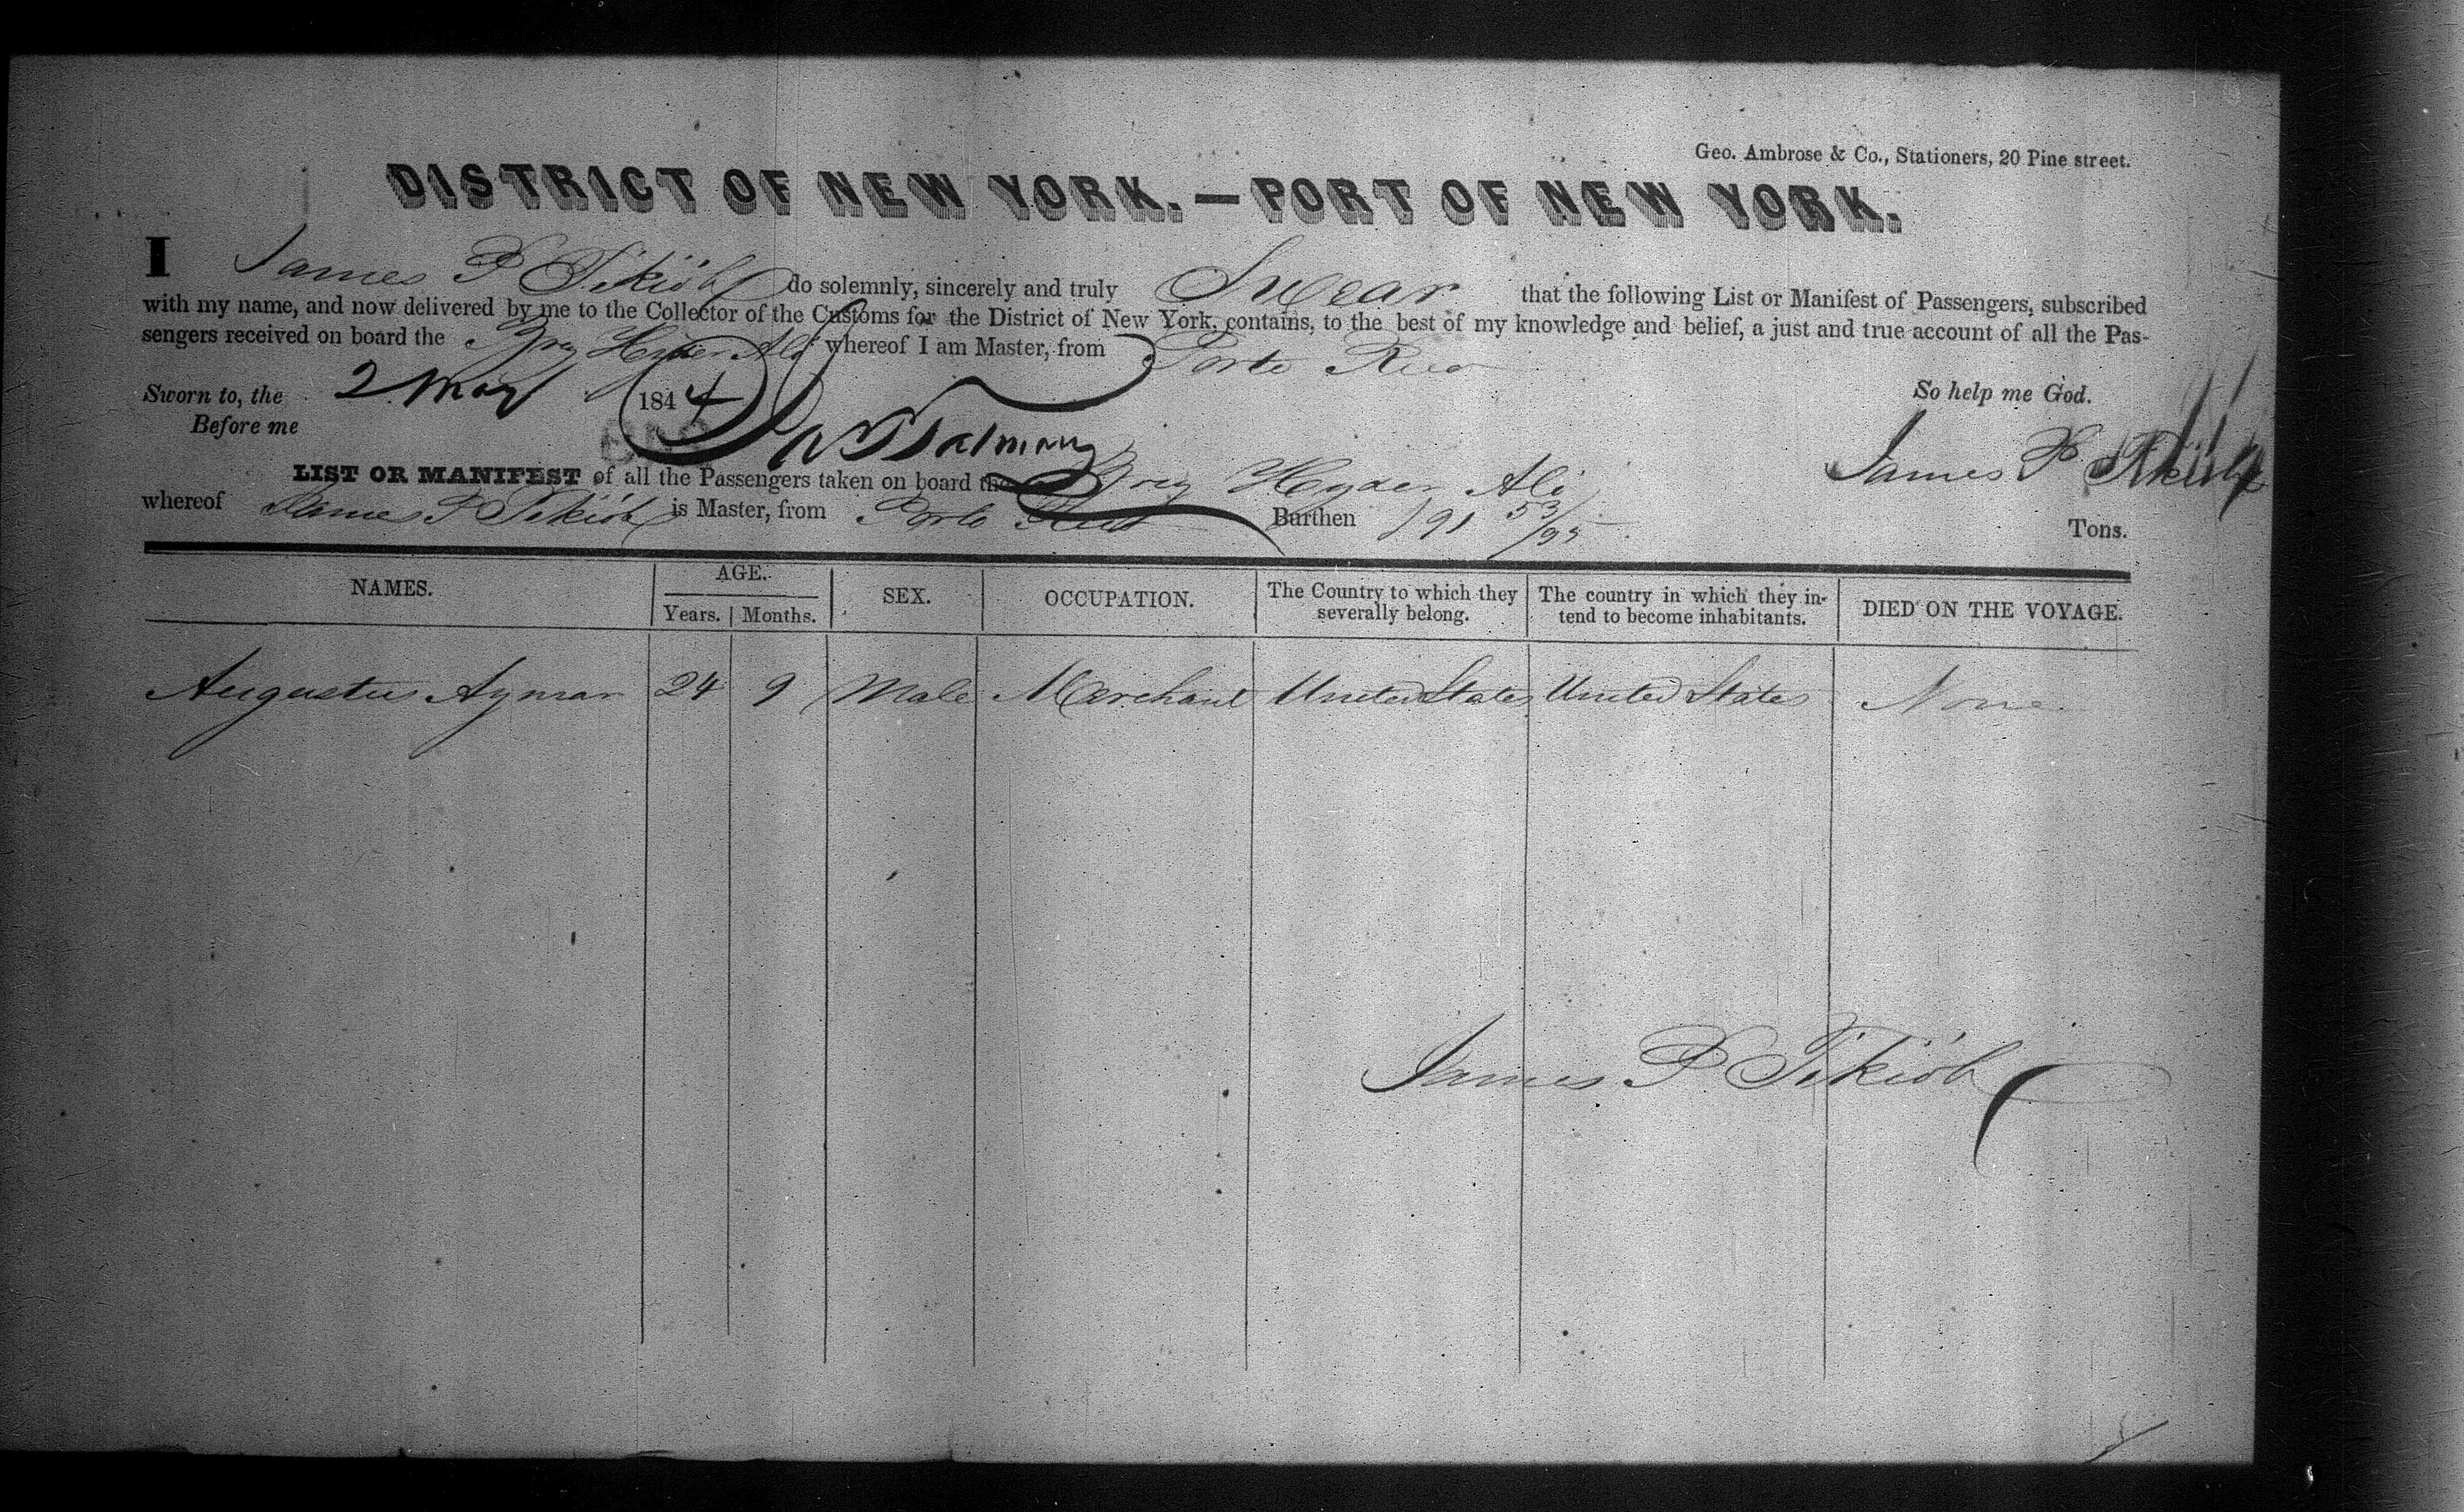 Geo. Ambrose & Co., Stationers, 20 Pine street.
DISTRICT OF NEW YORK.—PORT OF NEW YORK.
I James P do solemnly, sincerely and truly Swear that the following List or Manifest of Passengers, subscribed
with my name, and now delivered by me to the Collector of the Customs for the District of New York, contains, to the best of my knowledge and belief, a just and true account of all the Pas-
sengers received on board the Brig Hyder Ali whereof I am Master, from Porto Rico
Sworn to, the 2 May 1844 So help me God.
Before me James P
LIST OR MANIFEST of all the Passengers taken on board the Brig Hyder Ali
whereof James P is Master, from Porto Rico Burthen 191 53/95 Tons.
NAMES. AGE. SEX. OCCUPATION. The Country to which they severally belong. The country in which they in- tend to become inhabitants. DIED ON THE VOYAGE.
Years. Months.
Augustus Aymar 24 9 Male Merchant United States United States None
James P